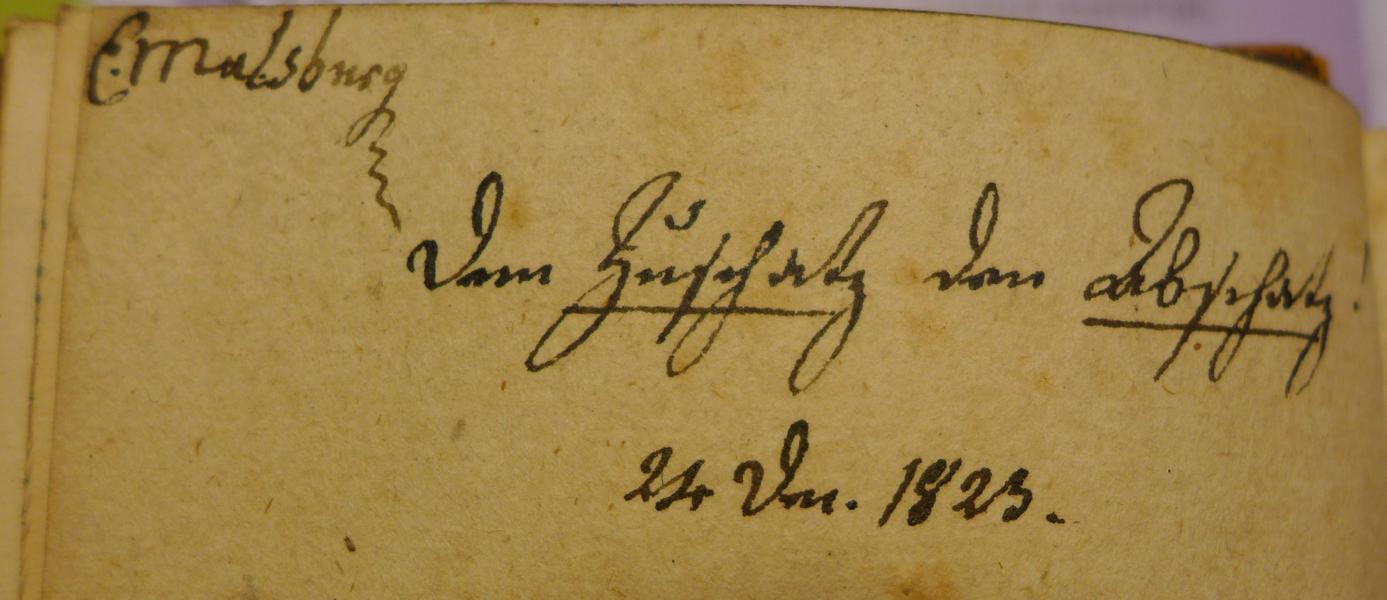 Ermalsburg
Dem Zuschatz den Abschatz!
24 Dec. 1823.